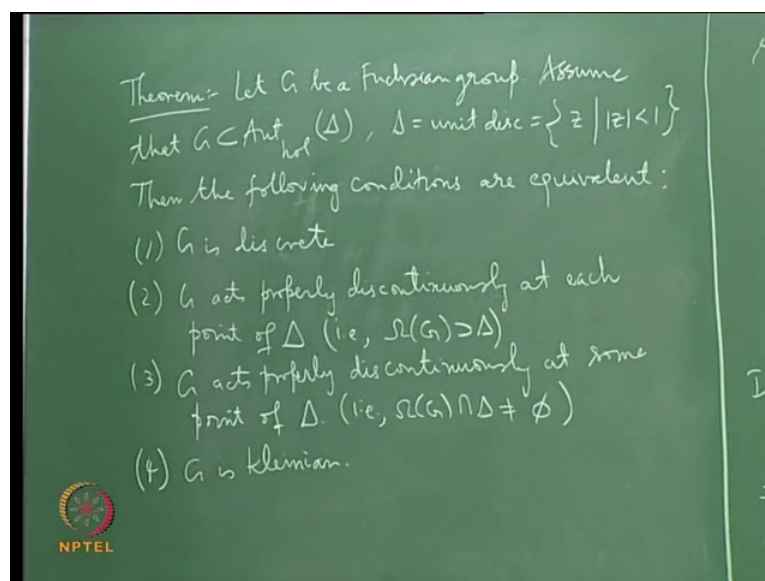 Theorem:- Let G be a Fuchsian group. Assume
that G ⊂ Aut_hol (Δ), Δ = unit disc = { z | |z| < 1 }
Then the following conditions are equivalent:
(1) G is discrete
(2) G acts properly discontinuously at each
point of Δ (i.e, Ω(G) ⊃ Δ)
(3) G acts properly discontinuously at some
point of Δ. (i.e, Ω(G) ∩ Δ ≠ ϕ)
(4) G is Kleinian.
NPTEL